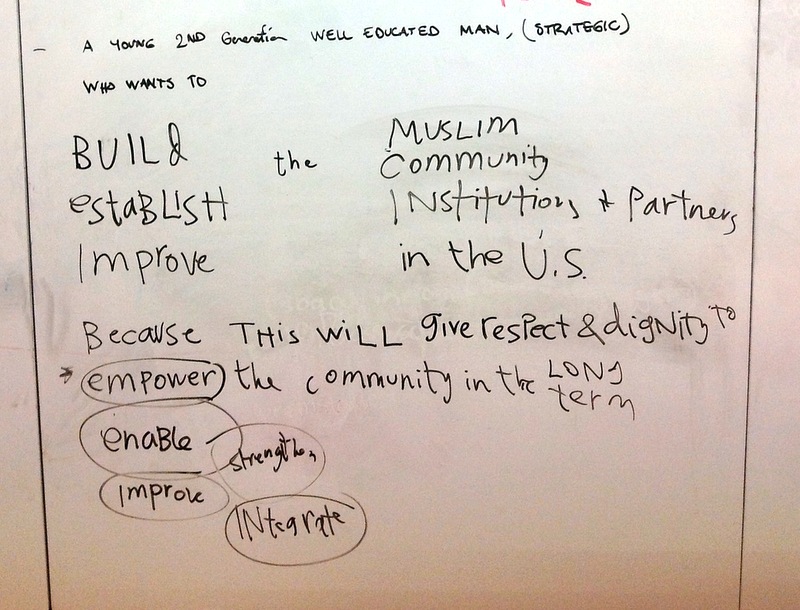 - A YOUNG 2ND Generation WELL EDUCATED MAN, (STRATEGIC)
WHO WANTS TO
BUILd the MUSLIM Community
estaBLISH INstitutions + Partners
Improve in the U.S.
Because THIS WILL give respect & digNity TO
empower the community in the LONg term
enaBle
strengthen
Improve
INtegrate